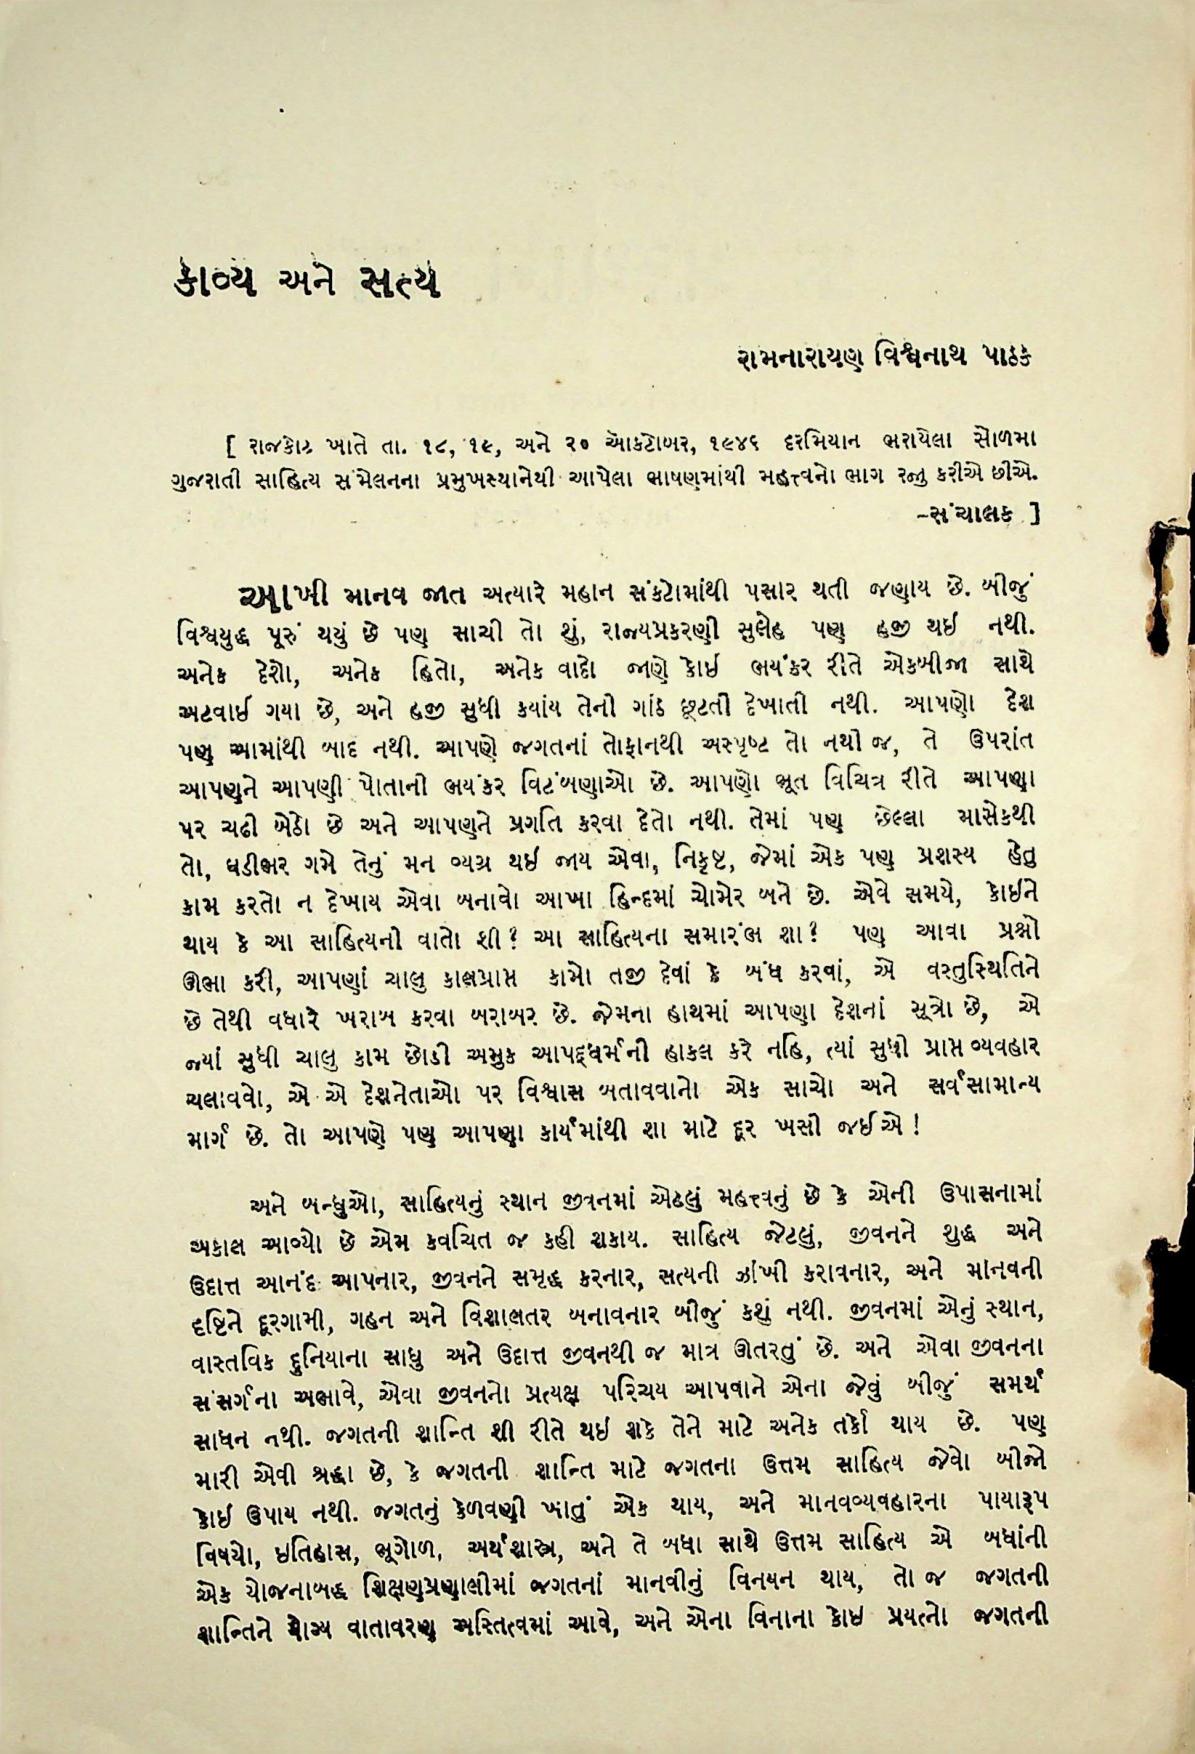 કાવ્ય અને સત્ય
રામનારાયણ વિશ્વનાથ પાઠક
[ રાજકોટ ખાતે તા. ૧૮, ૧૯, અને ૨૦ ઑકટોબર, ૧૯૪૬ દરમિયાન ભરાયેલા સોળમા
ગુજરાતી સાહિત્ય સંમેલનના પ્રમુખસ્થાનેથી આપેલા ભાષણમાંથી મહત્ત્વનો ભાગ રજુ કરીએ છીએ.
–સંચાલક ]
આખી માનવ જાત અત્યારે મહાન સંકટોમાંથી પસાર થતી જણાય છે. બીજું
વિશ્વયુદ્ધ પૂરું થયું છે પણ સાચી તો શું, રાજ્યપ્રકરણી સુલેહ પણ હજી થઈ નથી.
અનેક દેશો, અનેક હિતો, અનેક વાદો જાણે કોઈ ભયંકર રીતે એકબીજા સાથે
અટવાઈ ગયા છે, અને હજી સુધી કયાંય તેની ગાંઠ છૂટતી દેખાતી નથી. આપણો દેશ
પણ આમાંથી બાદ નથી. આપણે જગતનાં તોફાનથી અસ્પૃષ્ટ તો નથી જ, તે ઉપરાંત
આપણને આપણી પોતાની ભયંકર વિટંબણાઓ છે. આપણો ભૂત વિચિત્ર રીતે આપણા
પર ચઢી બેઠો છે અને આપણને પ્રગતિ કરવા દેતો નથી. તેમાં પણ છેલ્લા માસેકથી
તો, ઘડીભર ગમે તેનું મન વ્યગ્ર થઈ જાય એવા, નિકૃષ્ટ, જેમાં એક પણ પ્રશસ્ય હેતુ
કામ કરતો ન દેખાય એવા બનાવો આખા હિન્દમાં ચોમેર બને છે. એવે સમયે, કોઈને
થાય કે આ સાહિત્યની વાતો શી? આ સાહિત્યના સમારંભ શા? પણ આવા પ્રશ્નો
ઊભા કરી, આપણાં ચાલુ કાલપ્રાપ્ત કામો તજી દેવાં કે બંધ કરવાં, એ વસ્તુસ્થિતિને
છે તેથી વધારે ખરાબ કરવા બરાબર છે. જેમના હાથમાં આપણા દેશનાં સૂત્રો છે, એ
જ્યાં સુધી ચાલુ કામ છોડી અમુક આપદ્ધર્મની હાકલ કરે નહિ, ત્યાં સુધી પ્રાપ્ત વ્યવહાર
ચલાવવો, એ એ દેશનેતાઓ પર વિશ્વાસ બતાવવાનો એક સાચો અને સર્વસામાન્ય
માર્ગ છે. તો આપણે પણ આપણા કાર્યમાંથી શા માટે દૂર ખસી જઈએ!
અને બન્ધુઓ, સાહિત્યનું સ્થાન જીવનમાં એટલું મહત્ત્વનું છે કે એની ઉપાસનામાં
અકાલ આવ્યો છે એમ કવચિત જ કહી શકાય. સાહિત્ય જેટલું, જીવનને શુદ્ધ અને
ઉદાત્ત આનંદ આપનાર, જીવનને સમૃદ્ધ કરનાર, સત્યની ઝાંખી કરાવનાર, અને માનવની
દૃષ્ટિને દૂરગામી, ગહન અને વિશાલતર બનાવનાર બીજું કશું નથી. જીવનમાં એનું સ્થાન,
વાસ્તવિક દુનિયાના સાધુ અને ઉદાત્ત જીવનથી જ માત્ર ઊતરતું છે. અને એવા જીવનના
સંસર્ગના અભાવે, એવા જીવનનો પ્રત્યક્ષ પરિચય આપવાને એના જેવું બીજું સમર્થ
સાધન નથી. જગતની શાન્તિ શી રીતે થઈ શકે તેને માટે અનેક તર્કો થાય છે. પણ
મારી એવી શ્રદ્ધા છે, કે જગતની શાન્તિ માટે જગતના ઉત્તમ સાહિત્ય જેવો બીજો
કોઈ ઉપાય નથી. જગતનું કેળવણી ખાતું એક થાય, અને માનવવ્યવહારના પાયારૂપ
વિષયો, ઇતિહાસ, ભૂગોળ, અર્થશાસ્ત્ર, અને તે બધા સાથે ઉત્તમ સાહિત્ય એ બધાંની
એક યોજનાબદ્ધ શિક્ષણપ્રણાલીમાં જગતનાં માનવીનું વિનયન થાય, તો જ જગતની
શાન્તિને યોગ્ય વાતાવરણ અસ્તિત્વમાં આવે, અને એના વિનાના કોઈ પ્રયત્નો જગતની